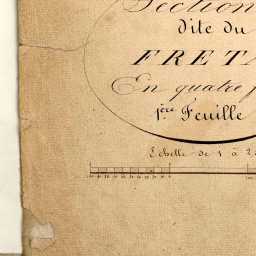 Section
dite du
FRETA
En quatre
1.ère Feuille
Echelle de 1 à 2